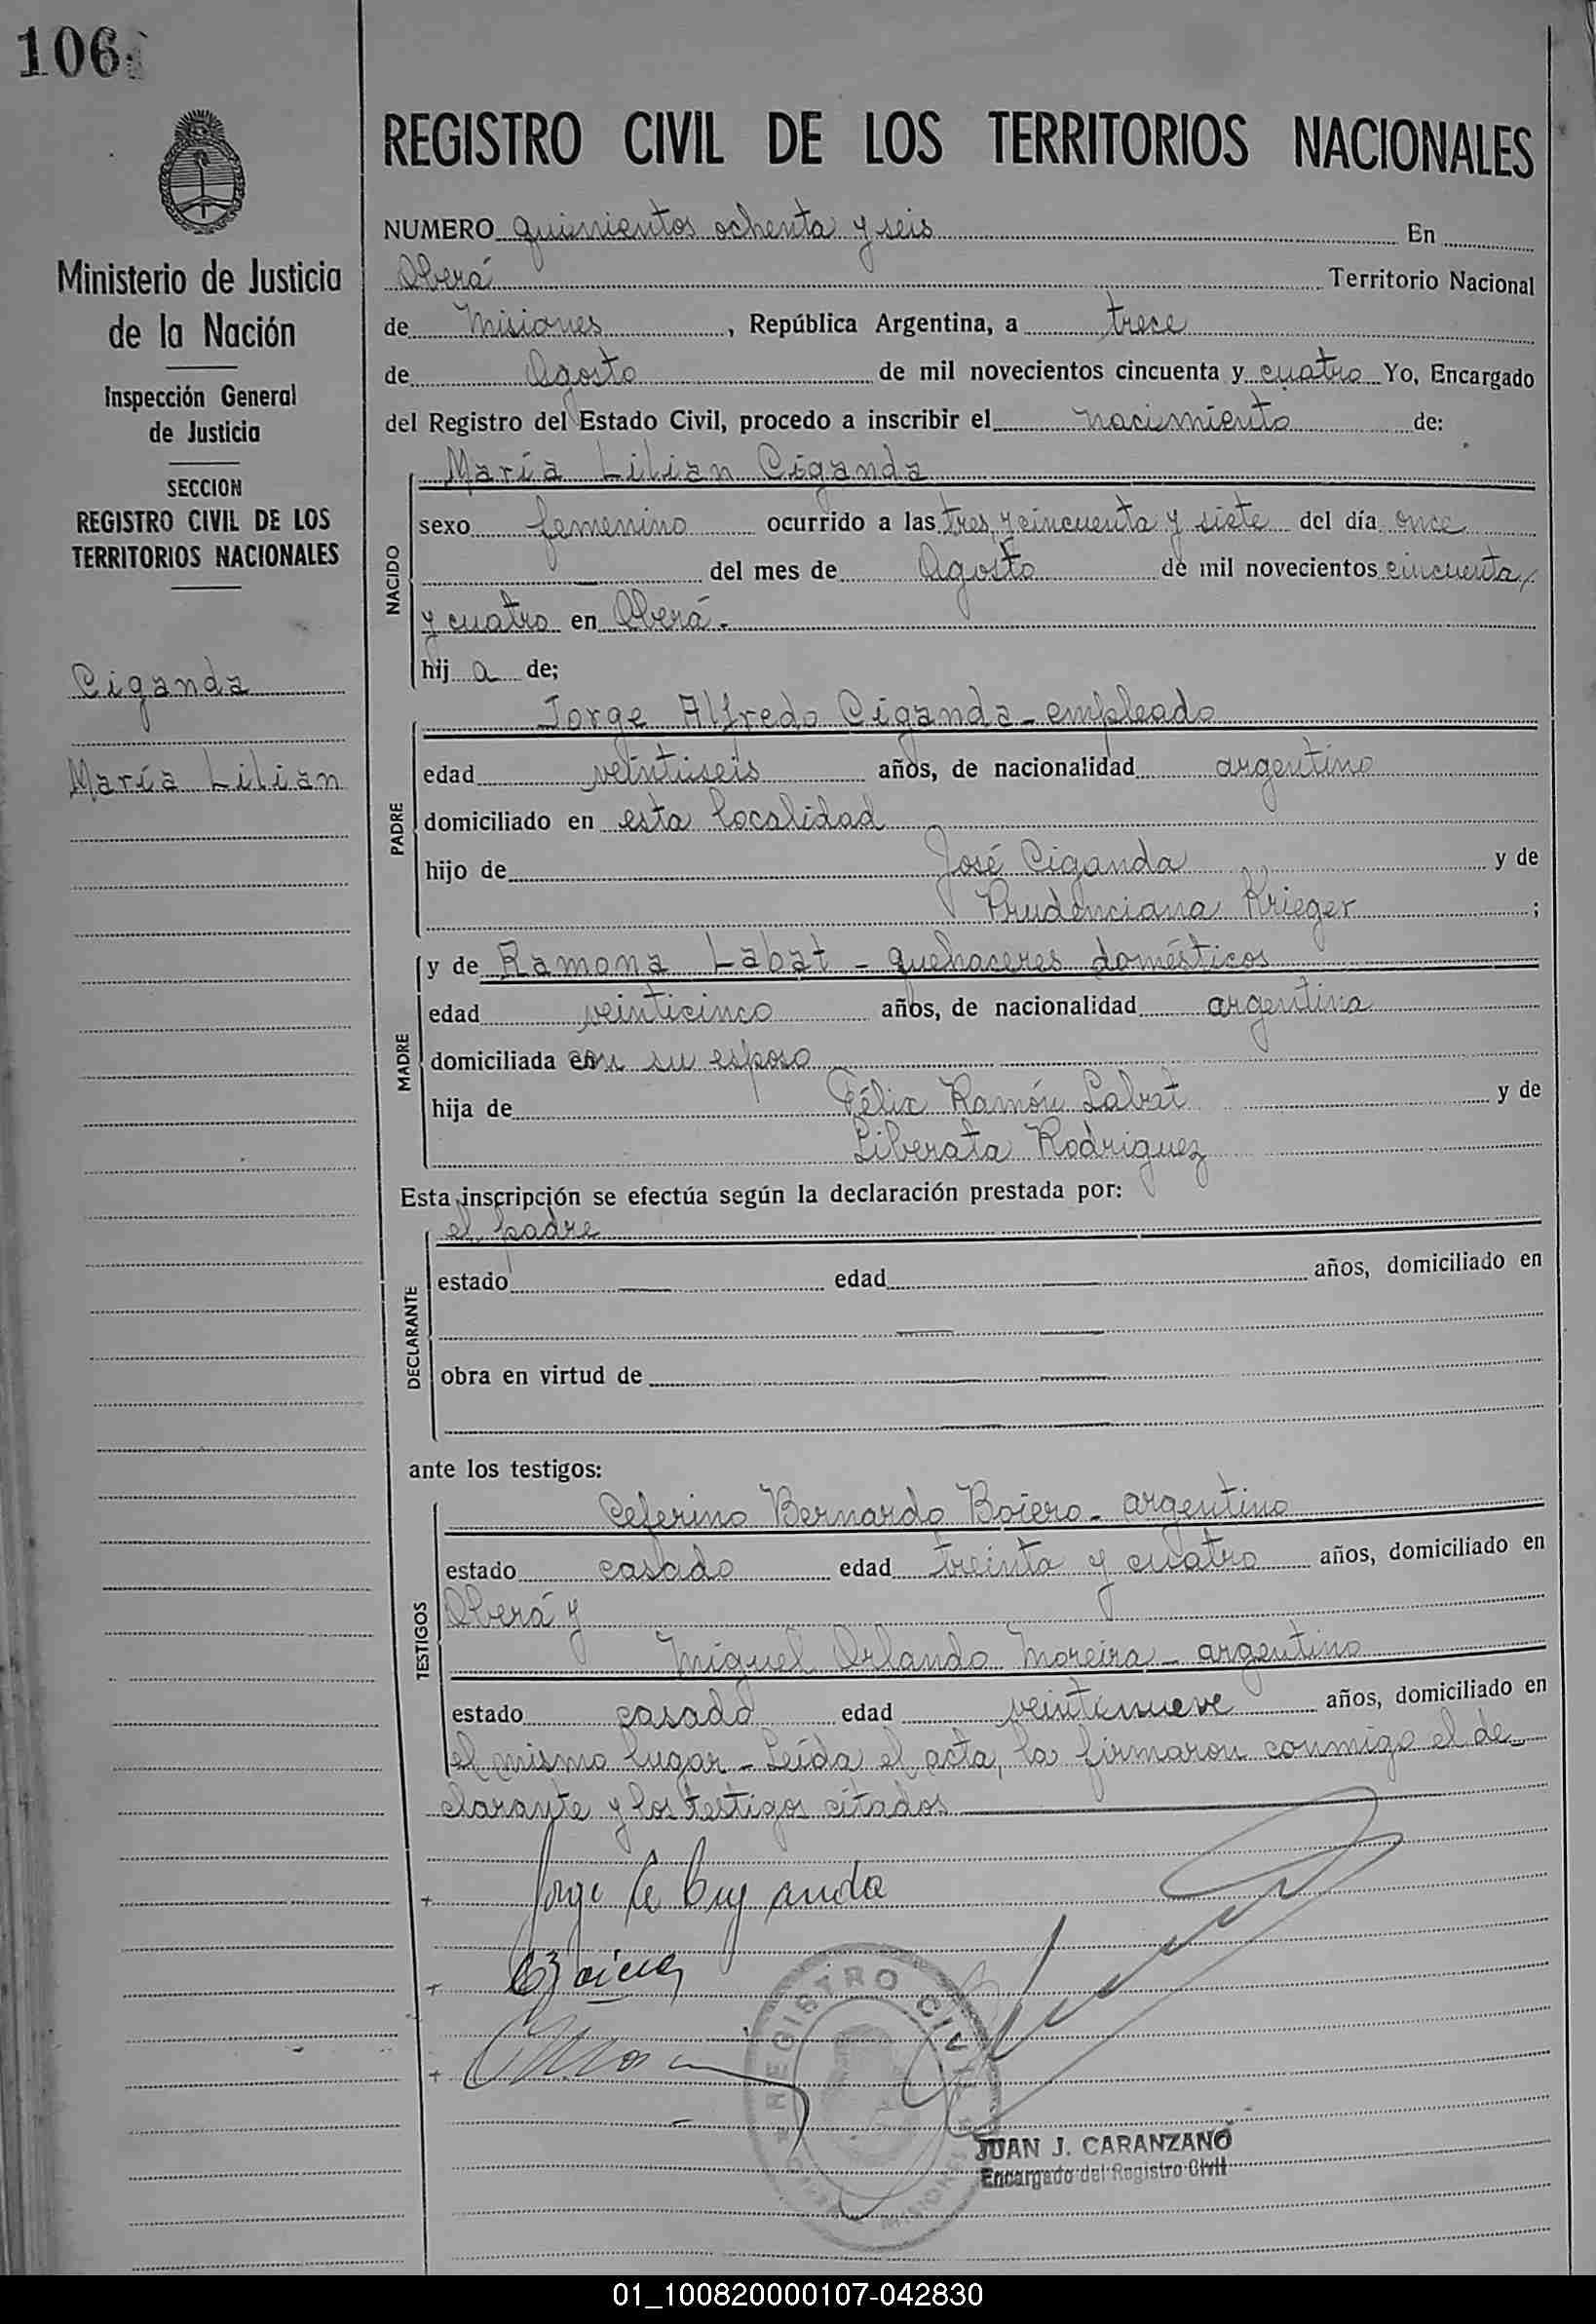 106
REGISTRO CIVIL DE LOS TERRITORIOS NACIONALES
Ministerio de Justicia
de la Nación
Inspección General
de Justicia
SECCION
REGISTRO CIVIL DE LOS
TERRITORIOS NACIONALES
Ciganda
María Lilian
NUMERO quinientos ochenta y seis En
Oberá Territorio Nacional
de Misiones, República Argentina, a trece
de Agosto de mil novecientos cincuenta y cuatro Yo, Encargado
del Registro del Estado Civil, procedo a inscribir el nacimiento de:
María Lilian Ciganda
NACIDO
sexo femenino ocurrido a las tres y cincuenta y siete del día once
del mes de Agosto de mil novecientos cincuenta
y cuatro en Oberá.
hij a de;
Jorge Alfredo Ciganda - empleado
PADRE
edad veintiseis años, de nacionalidad argentino
domiciliado en esta localidad
hijo de José Ciganda y de
Prudenciana Krieger ;
MADRE
y de Ramona Labat - quehaceres domésticos
edad veinticinco años, de nacionalidad argentina
domiciliada con su esposo
hija de Félix Ramón Labat y de
Liberata Rodriguez
Esta inscripción se efectúa según la declaración prestada por:
el padre
DECLARANTE
estado edad años, domiciliado en
obra en virtud de
ante los testigos:
TESTIGOS
Ceferino Bernardo Boiero - argentino
estado casado edad treinta y cuatro años, domiciliado en
Oberá y
Miguel Orlando Moreira - argentino
estado casado edad veintinueve años, domiciliado en
el mismo lugar - Leída el acta, la firmaron conmigo el de-
clarante y los testigos citados
Jorge A Ciganda
REGISTRO CIVIL
JUAN J. CARANZANO
Encargado del Registro Civil
01_100820000107-042830